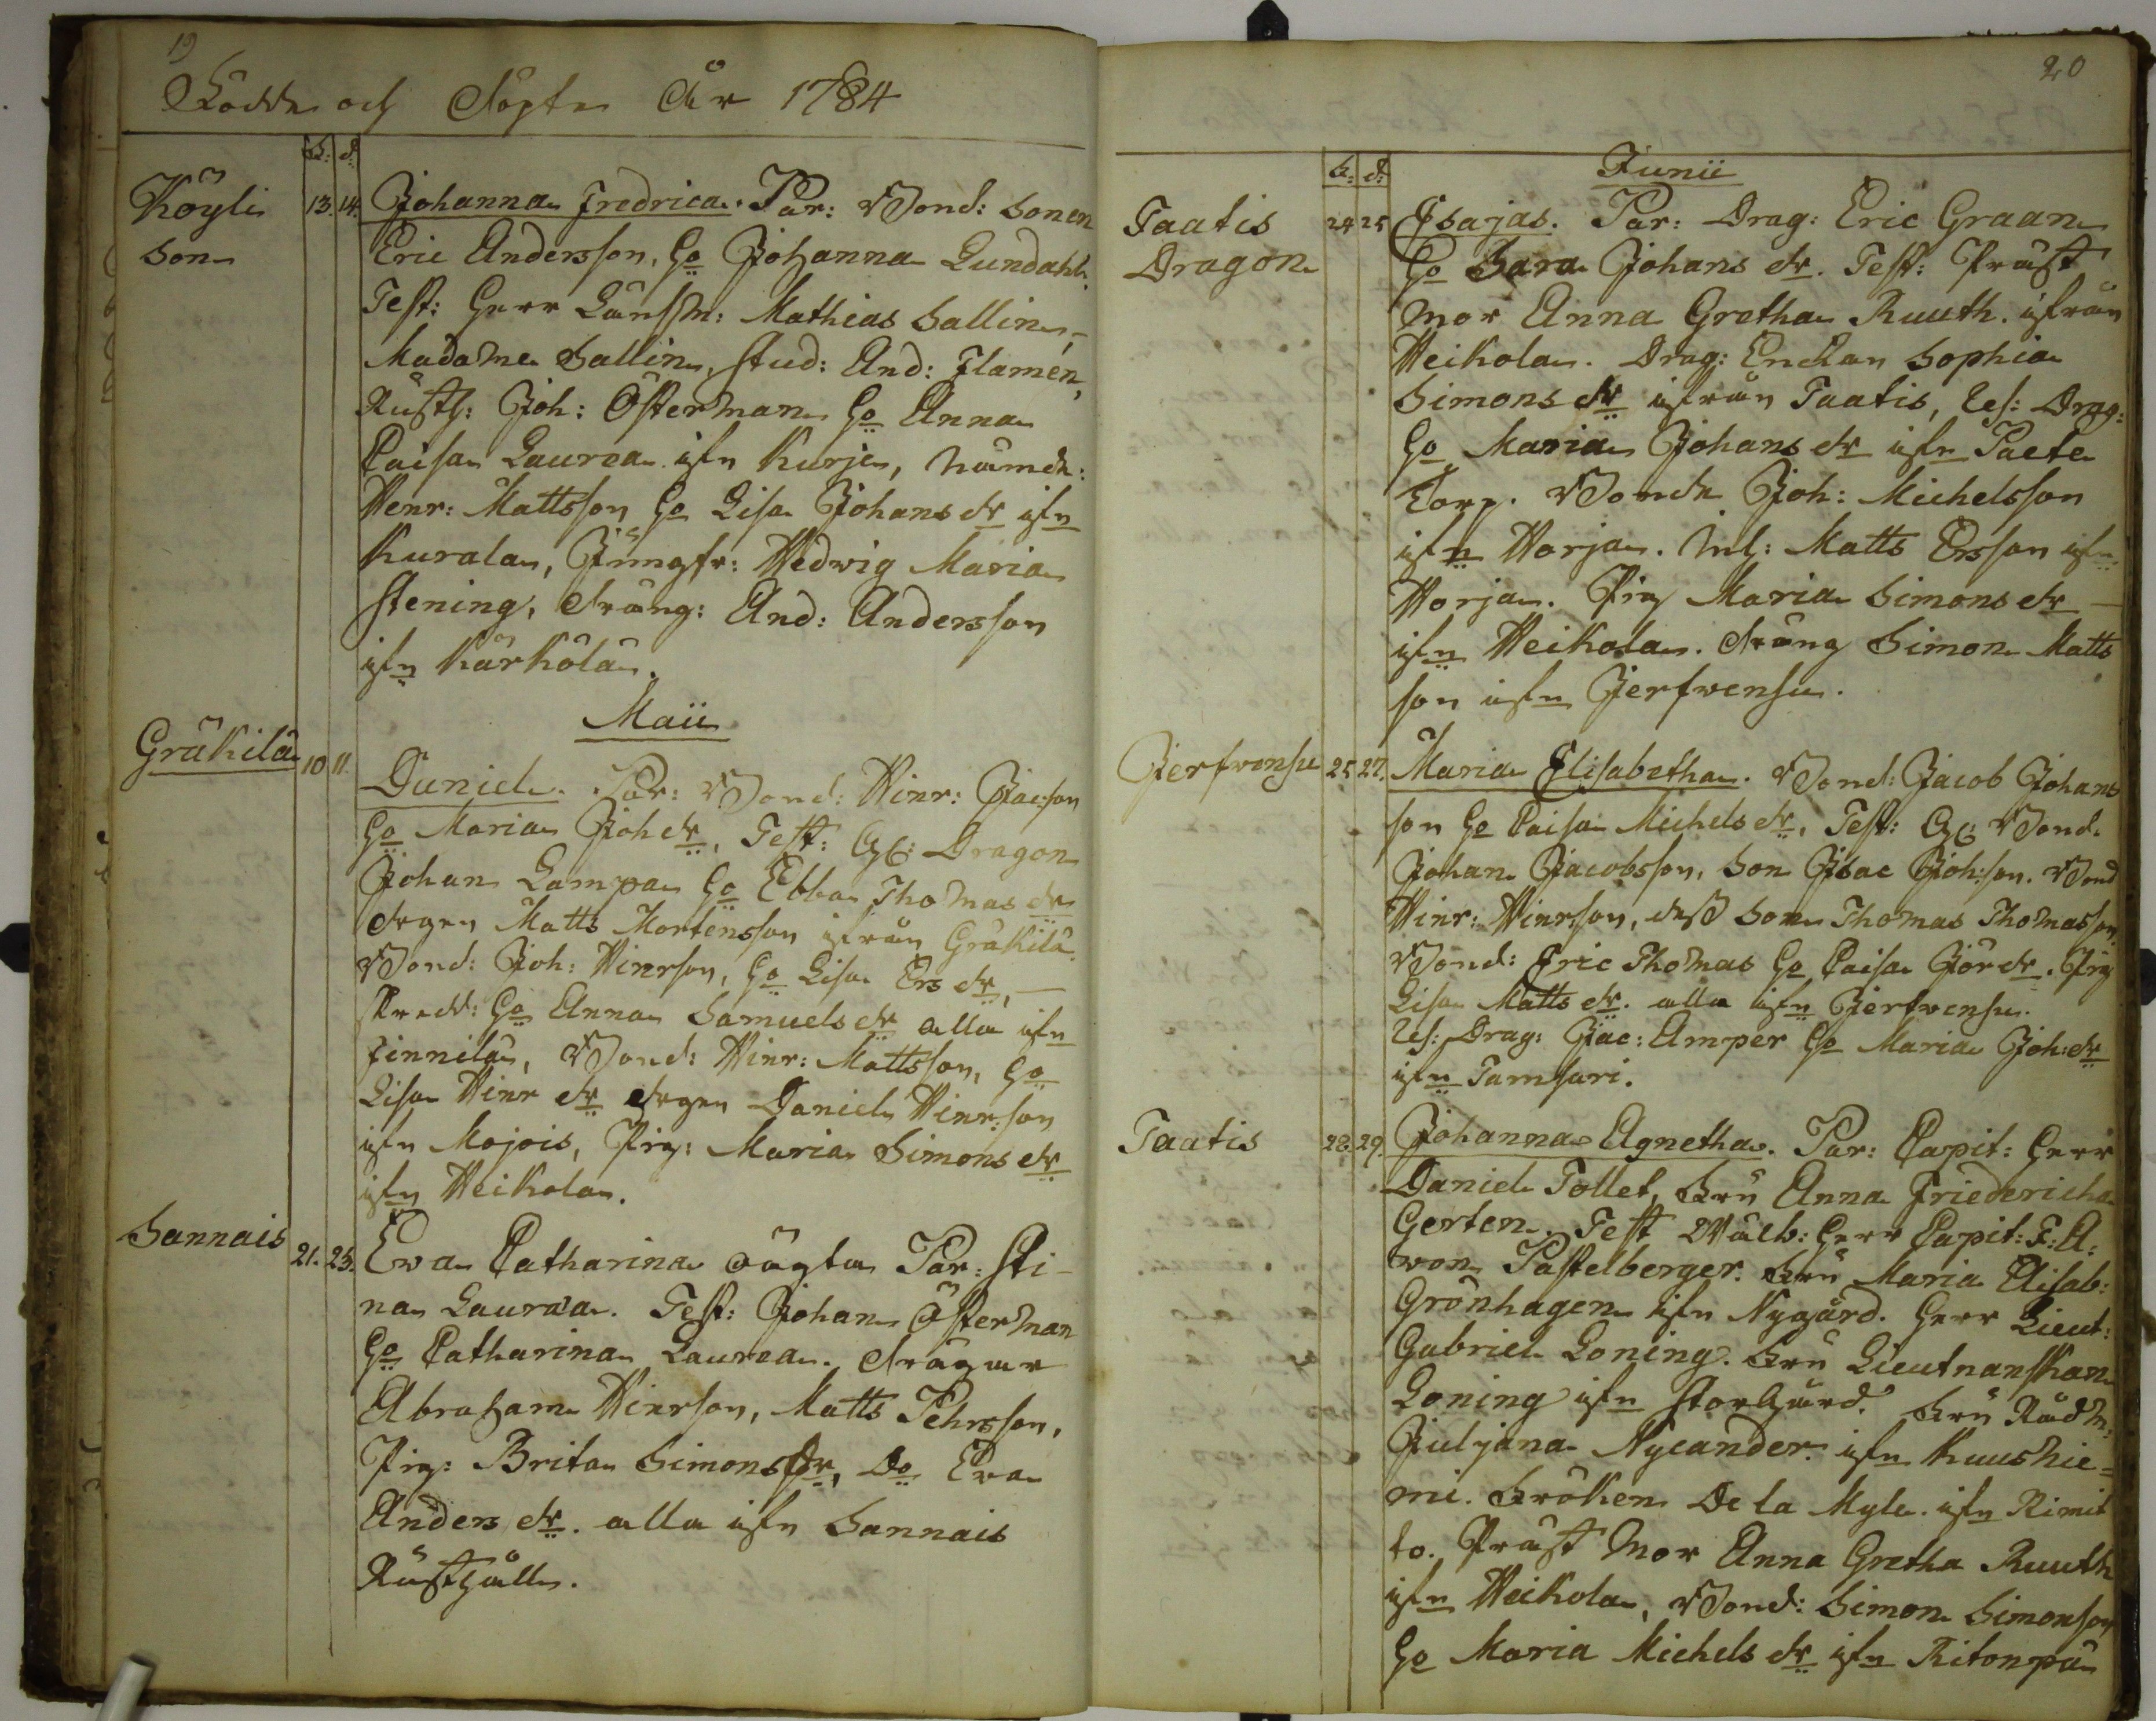 19
Födde och Döpte År 1784
f: d:
Köyli 13. 14. Johanna Fredrica. Par: Bond: Sonen
Son Eric Andersson, Ho Johanna Lundahl.
Test: Herr Länssm: Mathias Sallin,
Madame Sallin, Stud: And: Flamén,
Rusth: Joh: Österman Ho Anna
Caisa Laurea ifn Kurje, Nämdn:
Henr: Mattsson Ho Lisa Johans dr ifn
Kurala, Jungfr: Hedwig Maria
Stening, dräng: And: Andersson
ifn Kärkölä.
Maii
Gräkilä 10 11. Daniel. Par: Bond: Hinr: Jacson
Ho Maria Joh dr, Test: Gl: Dragon
Johan Lampa Ho Ebba Thomas dr
drgen Matts Mortensson ifrån Gräkilä.
Bond: Joh: Hinrson, Ho Lisa Ers dr,
Skredd: Ho Anna Samuels dr alla ifn
Finnilä, Bond: Hinr: Mattsson, Ho
Lisa Hinr dr drgen Daniel Hinr:son
ifn Mojois, Pig: Maria Simons dr
ifn Heikola.
Sannais 21. 23. Eva Catharina oägta Par: Sti-
na Lauraa. Test: Johan Österman
Ho Catharina Laurea. Drägar
Abraham Hinrson, Matts Pehrsson,
Pig: Brita Simonsdr, Do Eva
Anders dr. alla ifn Sannais
Rusthåll.
20
f: d: Junii
Taatis 24 25 Esajas. Par: Drag: Eric Graan
Dragon Ho Sara Johans dr. Test: Präst
mor Anna Gretha Ruuth. ifrån
Heikola. Drag: Enckan Sophia
Simons dr ifrån Taatis, Res: Drag:
Ho Maria Johans dr ifn Paete
Torp. Bonde Joh: Michelsson
ifn Horja. Matts Ersson ifn
Horja. Pig Maria Simons dr
ifn Heikola. Dräng Simon Matts
son ifn Jerfwensu.
Jerfwensu 25 27. Maria Elisabetha. Bond: Jacob Johans
son Ho Caisa Michels dr, Test: Gl: Bond.
Johan Jacobsson, Son Isac Joh:son. Bond
Hinr: Hinrson, dess Son Thomas Thomasson.
Bond: Eric Thomas Ho Caisa Jör dr. Pig
Lisa Matts dr. alla ifn Jerfwensu.
Res: Drag: Jac: Amper Ho Maria Joh: dr
ifn Tamsari.
Taatis 28. 29. Johanna Agnetha. Par: Capit: Herr
Daniel Tollet, Fru Anna Friedericha
Gerten. Test Wälb: Herr Capit: F: A:
von Pastelberger. Fru Maria Elisab:
Grönhagen ifn Nygård. Herr Lieut:
Gabriel Loning. Fru Lieutnanskan
Loning ifn StorGård. Fru Rådm:
Juljana Nycander. ifn Kuushie-
mi. Fröken De la Myle. ifn Rimit
to. Präst mor Anna Gretha Ruuth
ifn Heikola, Bond: Simon Simonson
Ho Maria Michels dr ifn Ritonpä